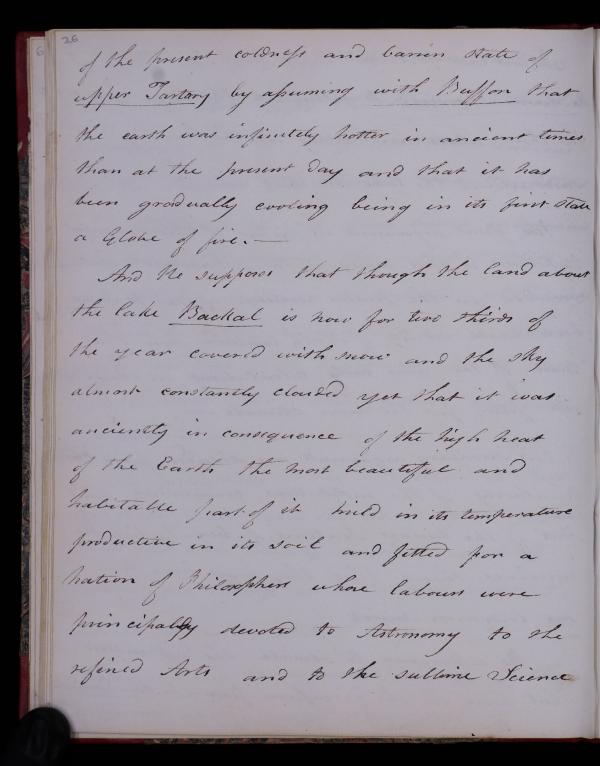 26
of the present coldness and barren state of
upper Tartary by assuming with Buffon that
the earth was infinitely hotter in ancient times
than at the present day and that it has
been gradually cooling being in its first state
a Globe of fire. —
And He supposes that though the land about
the lake Backal is now for two thirds of
the year covered with snow and the sky
almost constantly clouded yet that it was
anciently in consequence of the high heat
of the Earth the most beautiful and
habitable part of it mild in its temperature
productive in its soil and fitted for a
nation of Philosophers whose labours were
principally devoted to Astronomy to the
refined Arts and to the sublime Science